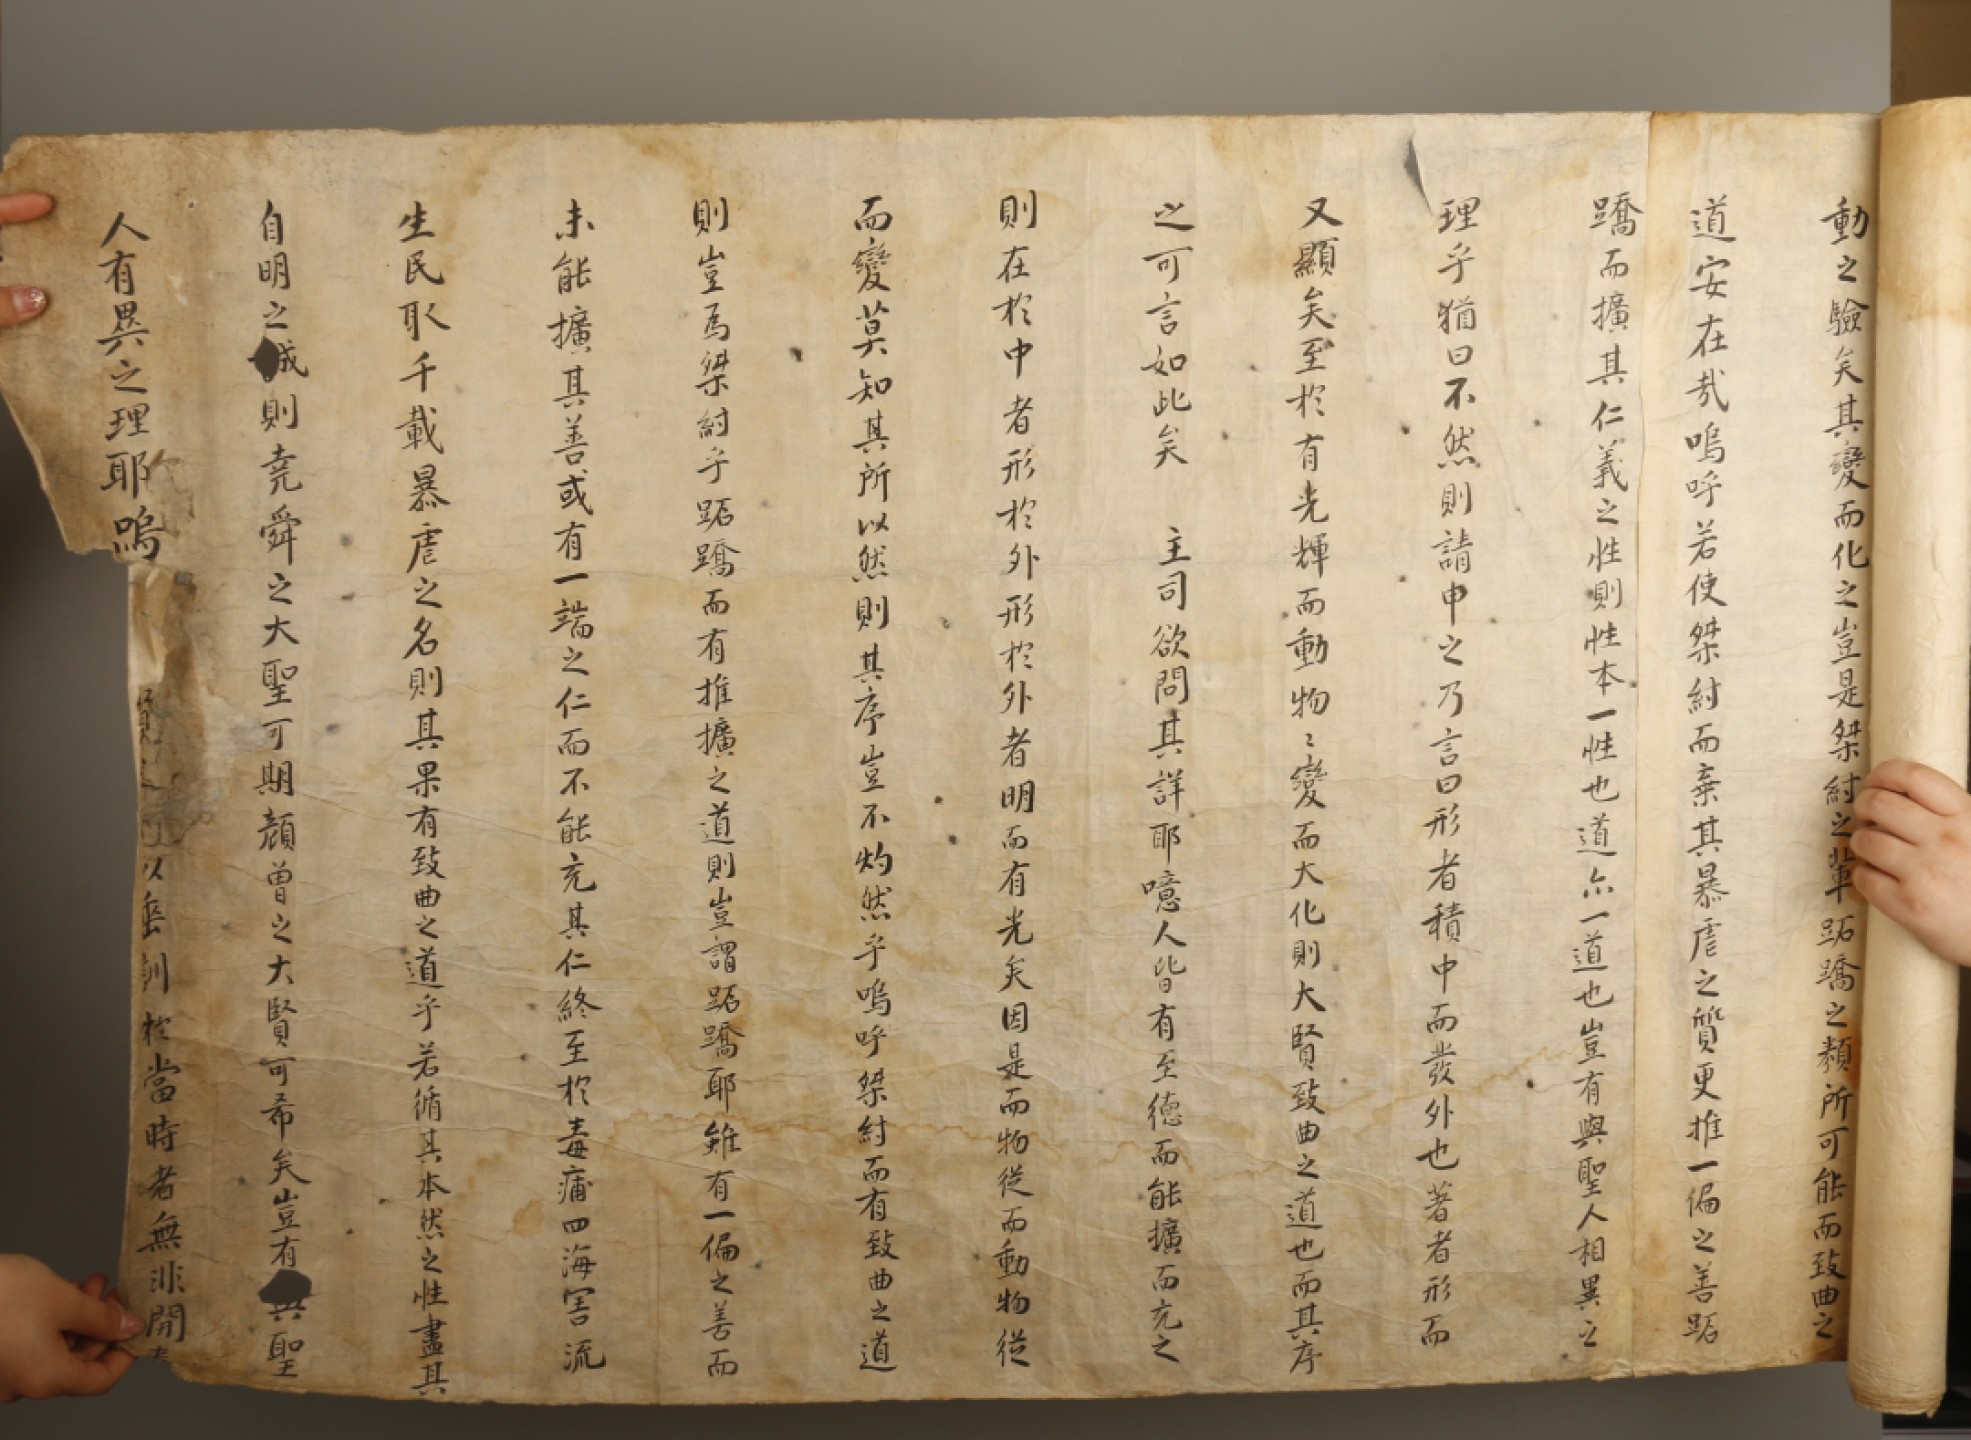 動之驗矣其變而化之豈是桀紂之輩跖蹻之類所可能而致曲之
道安在哉嗚呼若使桀紂而棄其暴虐之質更推一偏之善跖
蹻而擴其仁義之性則性本一性也道亦一道也豈有與聖人相異之
理乎猶曰不然則請申之乃言曰形者積中而發外也著者形而
又顯矣至於有光輝而動物〻變而大化則大賢致曲之道也而其序
之可言如此矣 主司欲問其詳耶噫人皆有至德而能擴而充之
則在於中者形於外形於外者明而有光矣因是而物從而動物從
而變莫知其所以然則其序豈不灼然乎嗚呼桀紂而有致曲之道
則豈爲桀紂乎跖蹻而有推擴之道則豈謂跖蹻耶雖有一偏之善而
未能擴其善或有一端之仁而不能充其仁終至於毒痡四海害流
生民取千載暴虐之名則其果有致曲之道乎若循其本然之性盡其
自明之誠則堯舜之大聖可期顔曾之大賢可希矣豈有與聖
人有異之理耶嗚 以垂訓於當時者無非開